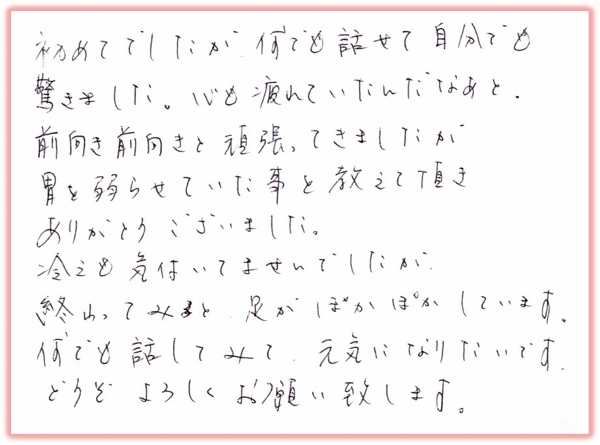 初めてでしたが、何でも話せて自分でも
驚きました。心も疲れていたんだなあと、
前向き前向きと頑張ってきましたが
胃を弱らせていた事を教えて頂き
ありがとうございました。
冷えも気付いてませんでしたが、
終わってみると、足がぽかぽかしています。
何でも話してみて、元気になりたいです。
どうぞよろしくお願い致します。